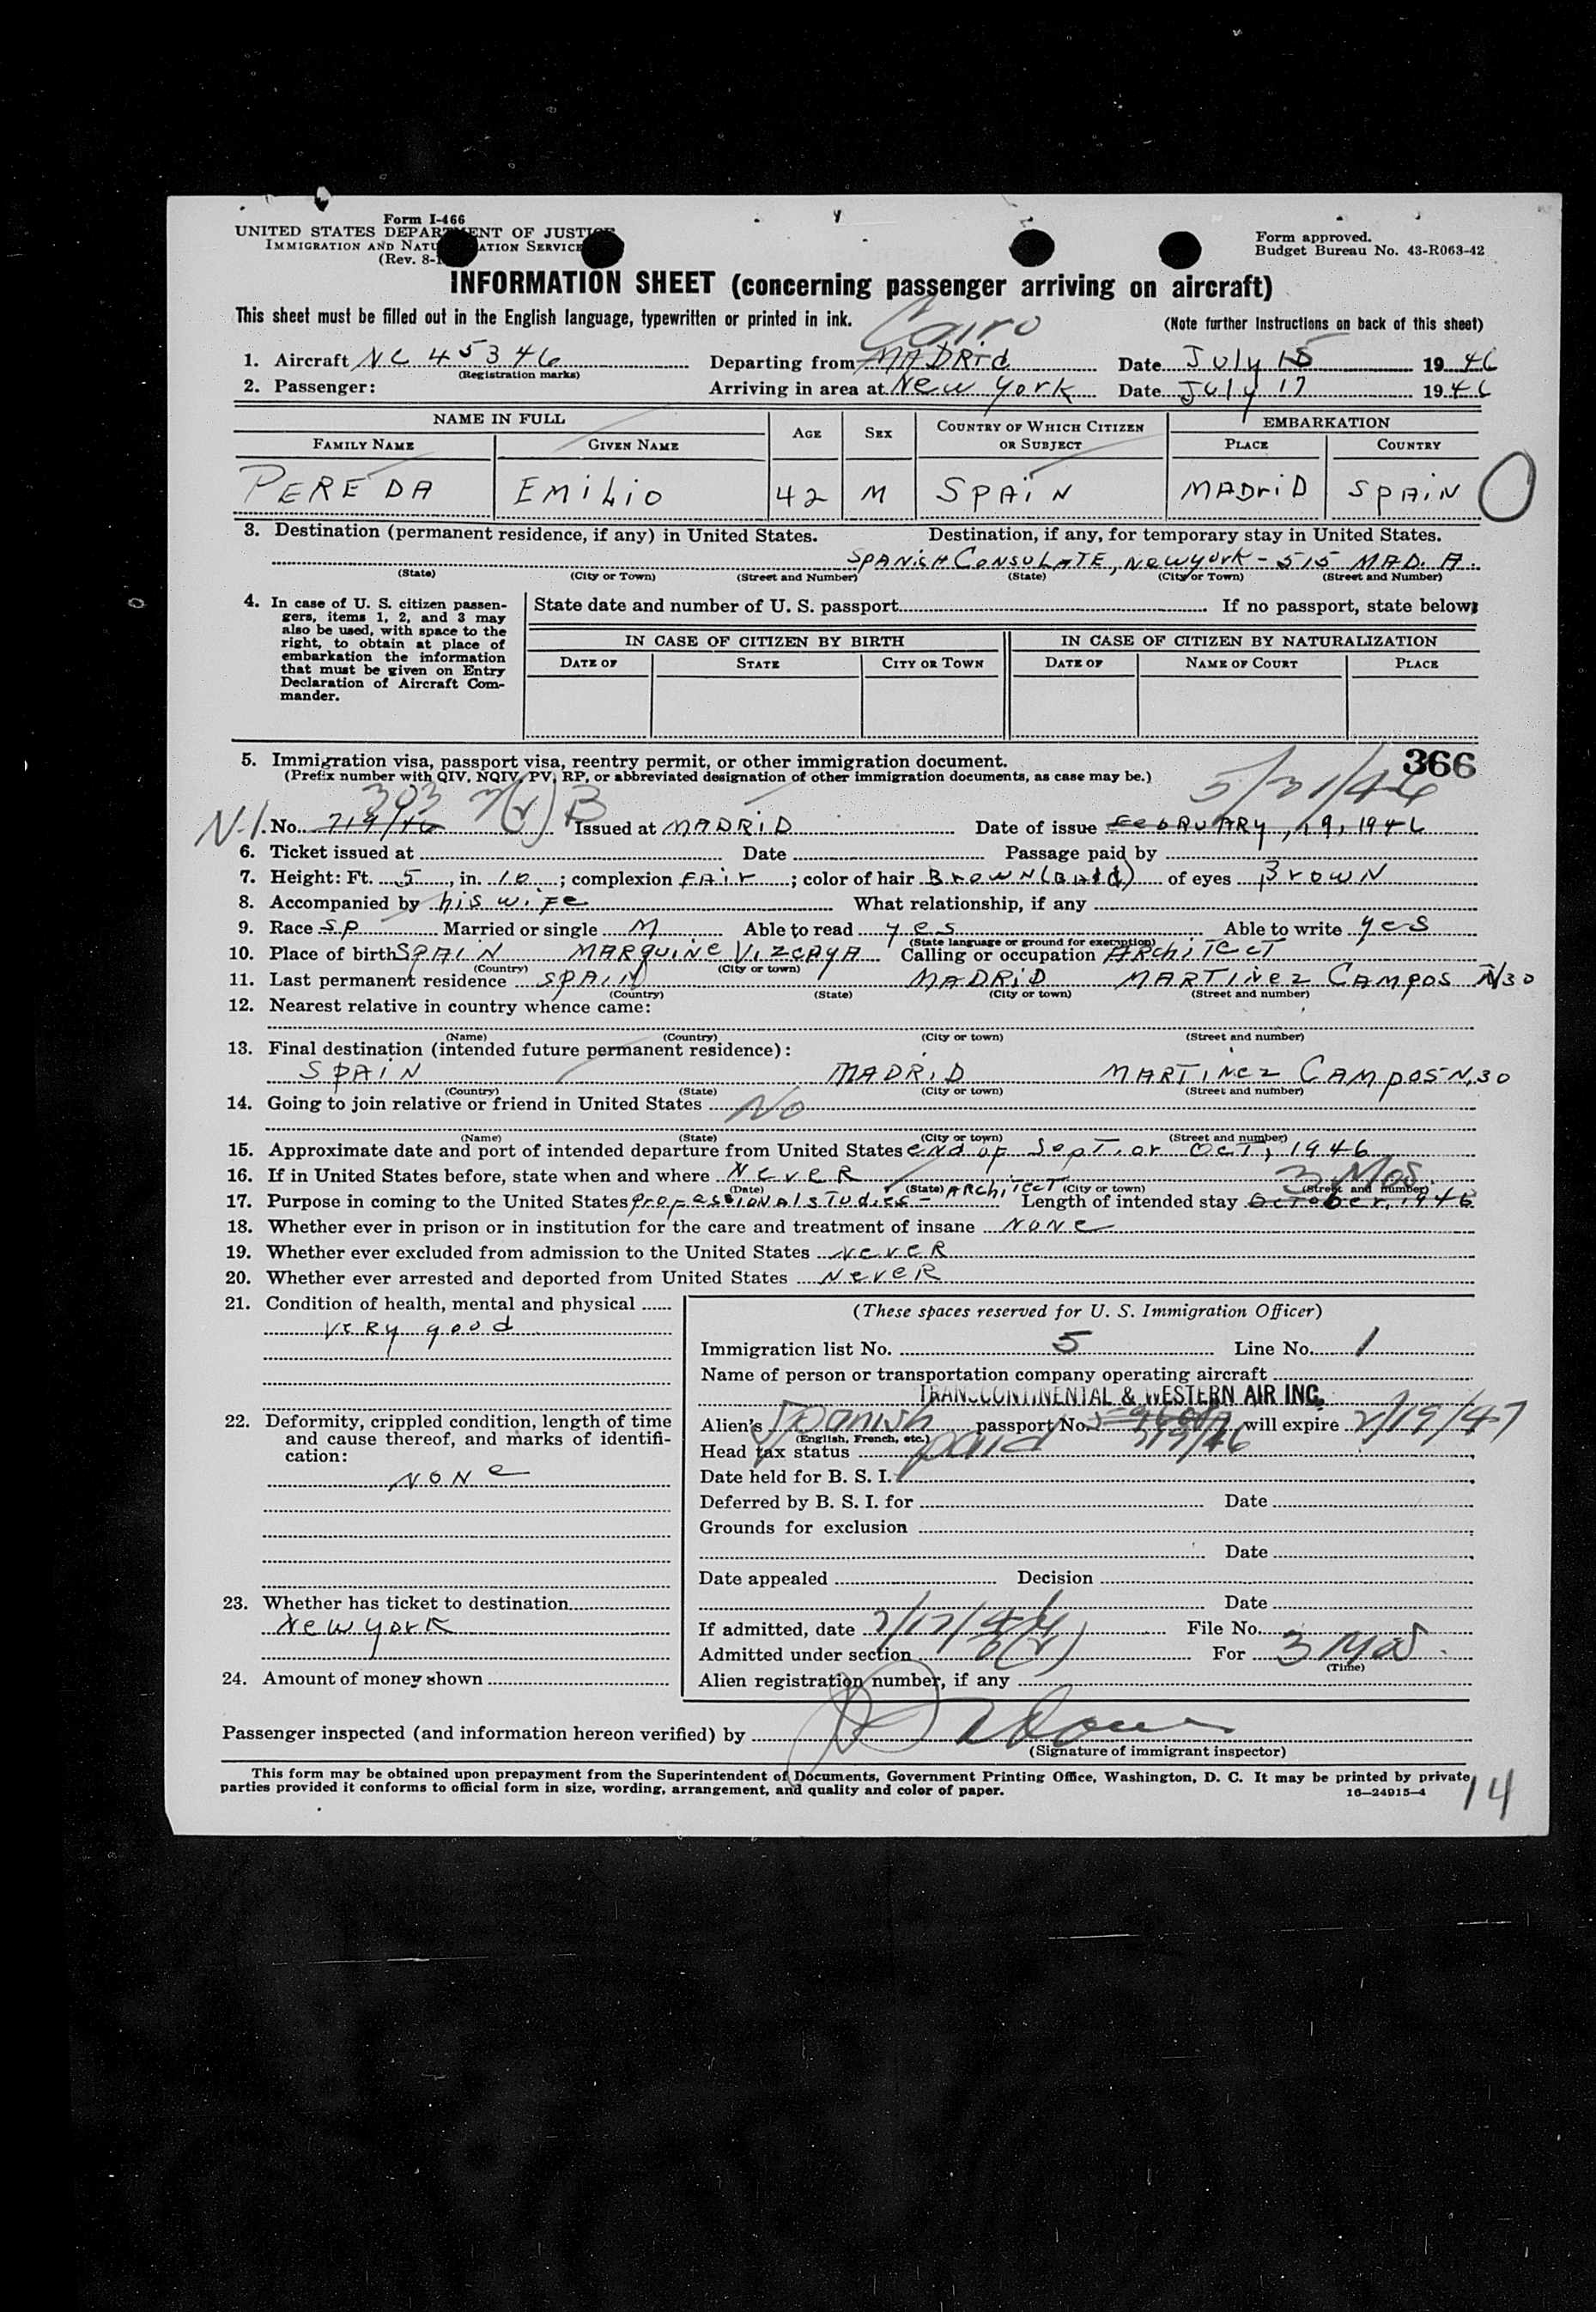 Form I-466
UNITED STATES DEPARTMENT OF JUSTICE
IMMIGRATION AND NATURALIZATION SERVICE
(Rev. 8-
Form approved.
Budget Bureau No. 43-R063-42
INFORMATION SHEET (concerning passenger arriving on aircraft)
This sheet must be filled out in the English language, typewritten or printed in ink.
(Note further instructions on back of this sheet)
Cairo
1. Aircraft NC 45346 Departing from MADRid Date July 15 1946
(Registration marks)
2. Passenger: Arriving in area at New York Date July 17 1946
NAME IN FULL
FAMILY NAME GIVEN NAME AGE SEX COUNTRY OF WHICH CITIZEN OR SUBJECT EMBARKATION PLACE COUNTRY
PEREDA EMiLio 42 M SPAiN MADriD SPAiN O
3. Destination (permanent residence, if any) in United States. Destination, if any, for temporary stay in United States.
SPANiSH CONSULATE, New York - 515 MAD. A.
(State) (City or Town) (Street and Number) (State) (City or Town) (Street and Number)
4. In case of U. S. citizen passengers, items 1, 2, and 3 may also be used, with space to the right, to obtain at place of embarkation the information that must be given on Entry Declaration of Aircraft Commander.
State date and number of U. S. passport If no passport, state below:
IN CASE OF CITIZEN BY BIRTH IN CASE OF CITIZEN BY NATURALIZATION
DATE OF STATE CITY OR TOWN DATE OF NAME OF COURT PLACE
5. Immigration visa, passport visa, reentry permit, or other immigration document. 366
(Prefix number with QIV, NQIV, PV, RP, or abbreviated designation of other immigration documents, as case may be.)
303 3(2) B 5/31/46
N.I. No. 719/46 Issued at MADRiD Date of issue FebRUARy, 19, 1946
6. Ticket issued at Date Passage paid by
7. Height: Ft. 5, in. 10; complexion FAir; color of hair Brown (Bald) of eyes Brown
8. Accompanied by his wife What relationship, if any
9. Race SP Married or single M Able to read yes Able to write yes
(State language or ground for exemption)
10. Place of birth SPAIN MARQUINE VIZCAYA Calling or occupation ARchiTecT
(Country) (City or town)
11. Last permanent residence SPAIN MADRiD MARTiNez CAMPOS N 30
(Country) (State) (City or town) (Street and number)
12. Nearest relative in country whence came:
(Name) (Country) (City or town) (Street and number)
13. Final destination (intended future permanent residence):
SPAiN MADRiD MARTiNez CAMPOS N. 30
(Country) (State) (City or town) (Street and number)
14. Going to join relative or friend in United States No
(Name) (State) (City or town) (Street and number)
15. Approximate date and port of intended departure from United States end of Sept. or OcT, 1946
16. If in United States before, state when and where NeveR
3 Mos.
(Date) (State) (City or town) (Street and number)
17. Purpose in coming to the United States professional studies - ARchiTecT Length of intended stay OcTober, 1946
18. Whether ever in prison or in institution for the care and treatment of insane None
19. Whether ever excluded from admission to the United States NeveR
20. Whether ever arrested and deported from United States NeveR
21. Condition of health, mental and physical
very good
22. Deformity, crippled condition, length of time and cause thereof, and marks of identification:
None
23. Whether has ticket to destination
New york
24. Amount of money shown
(These spaces reserved for U. S. Immigration Officer)
Immigration list No. 5 Line No. 1
Name of person or transportation company operating aircraft
TRANSCONTINENTAL & WESTERN AIR INC.
Alien's Spanish passport No. will expire 2/19/47
(English, French, etc.)
Head tax status paid
Date held for B. S. I.
Deferred by B. S. I. for Date
Grounds for exclusion
Date
Date appealed Decision
Date
If admitted, date 7/17/46 File No.
Admitted under section 3(2) For 3 Mos.
(Time)
Alien registration number, if any
Passenger inspected (and information hereon verified) by
(Signature of immigrant inspector)
This form may be obtained upon prepayment from the Superintendent of Documents, Government Printing Office, Washington, D. C. It may be printed by private
parties provided it conforms to official form in size, wording, arrangement, and quality and color of paper.
16—24915-4
14